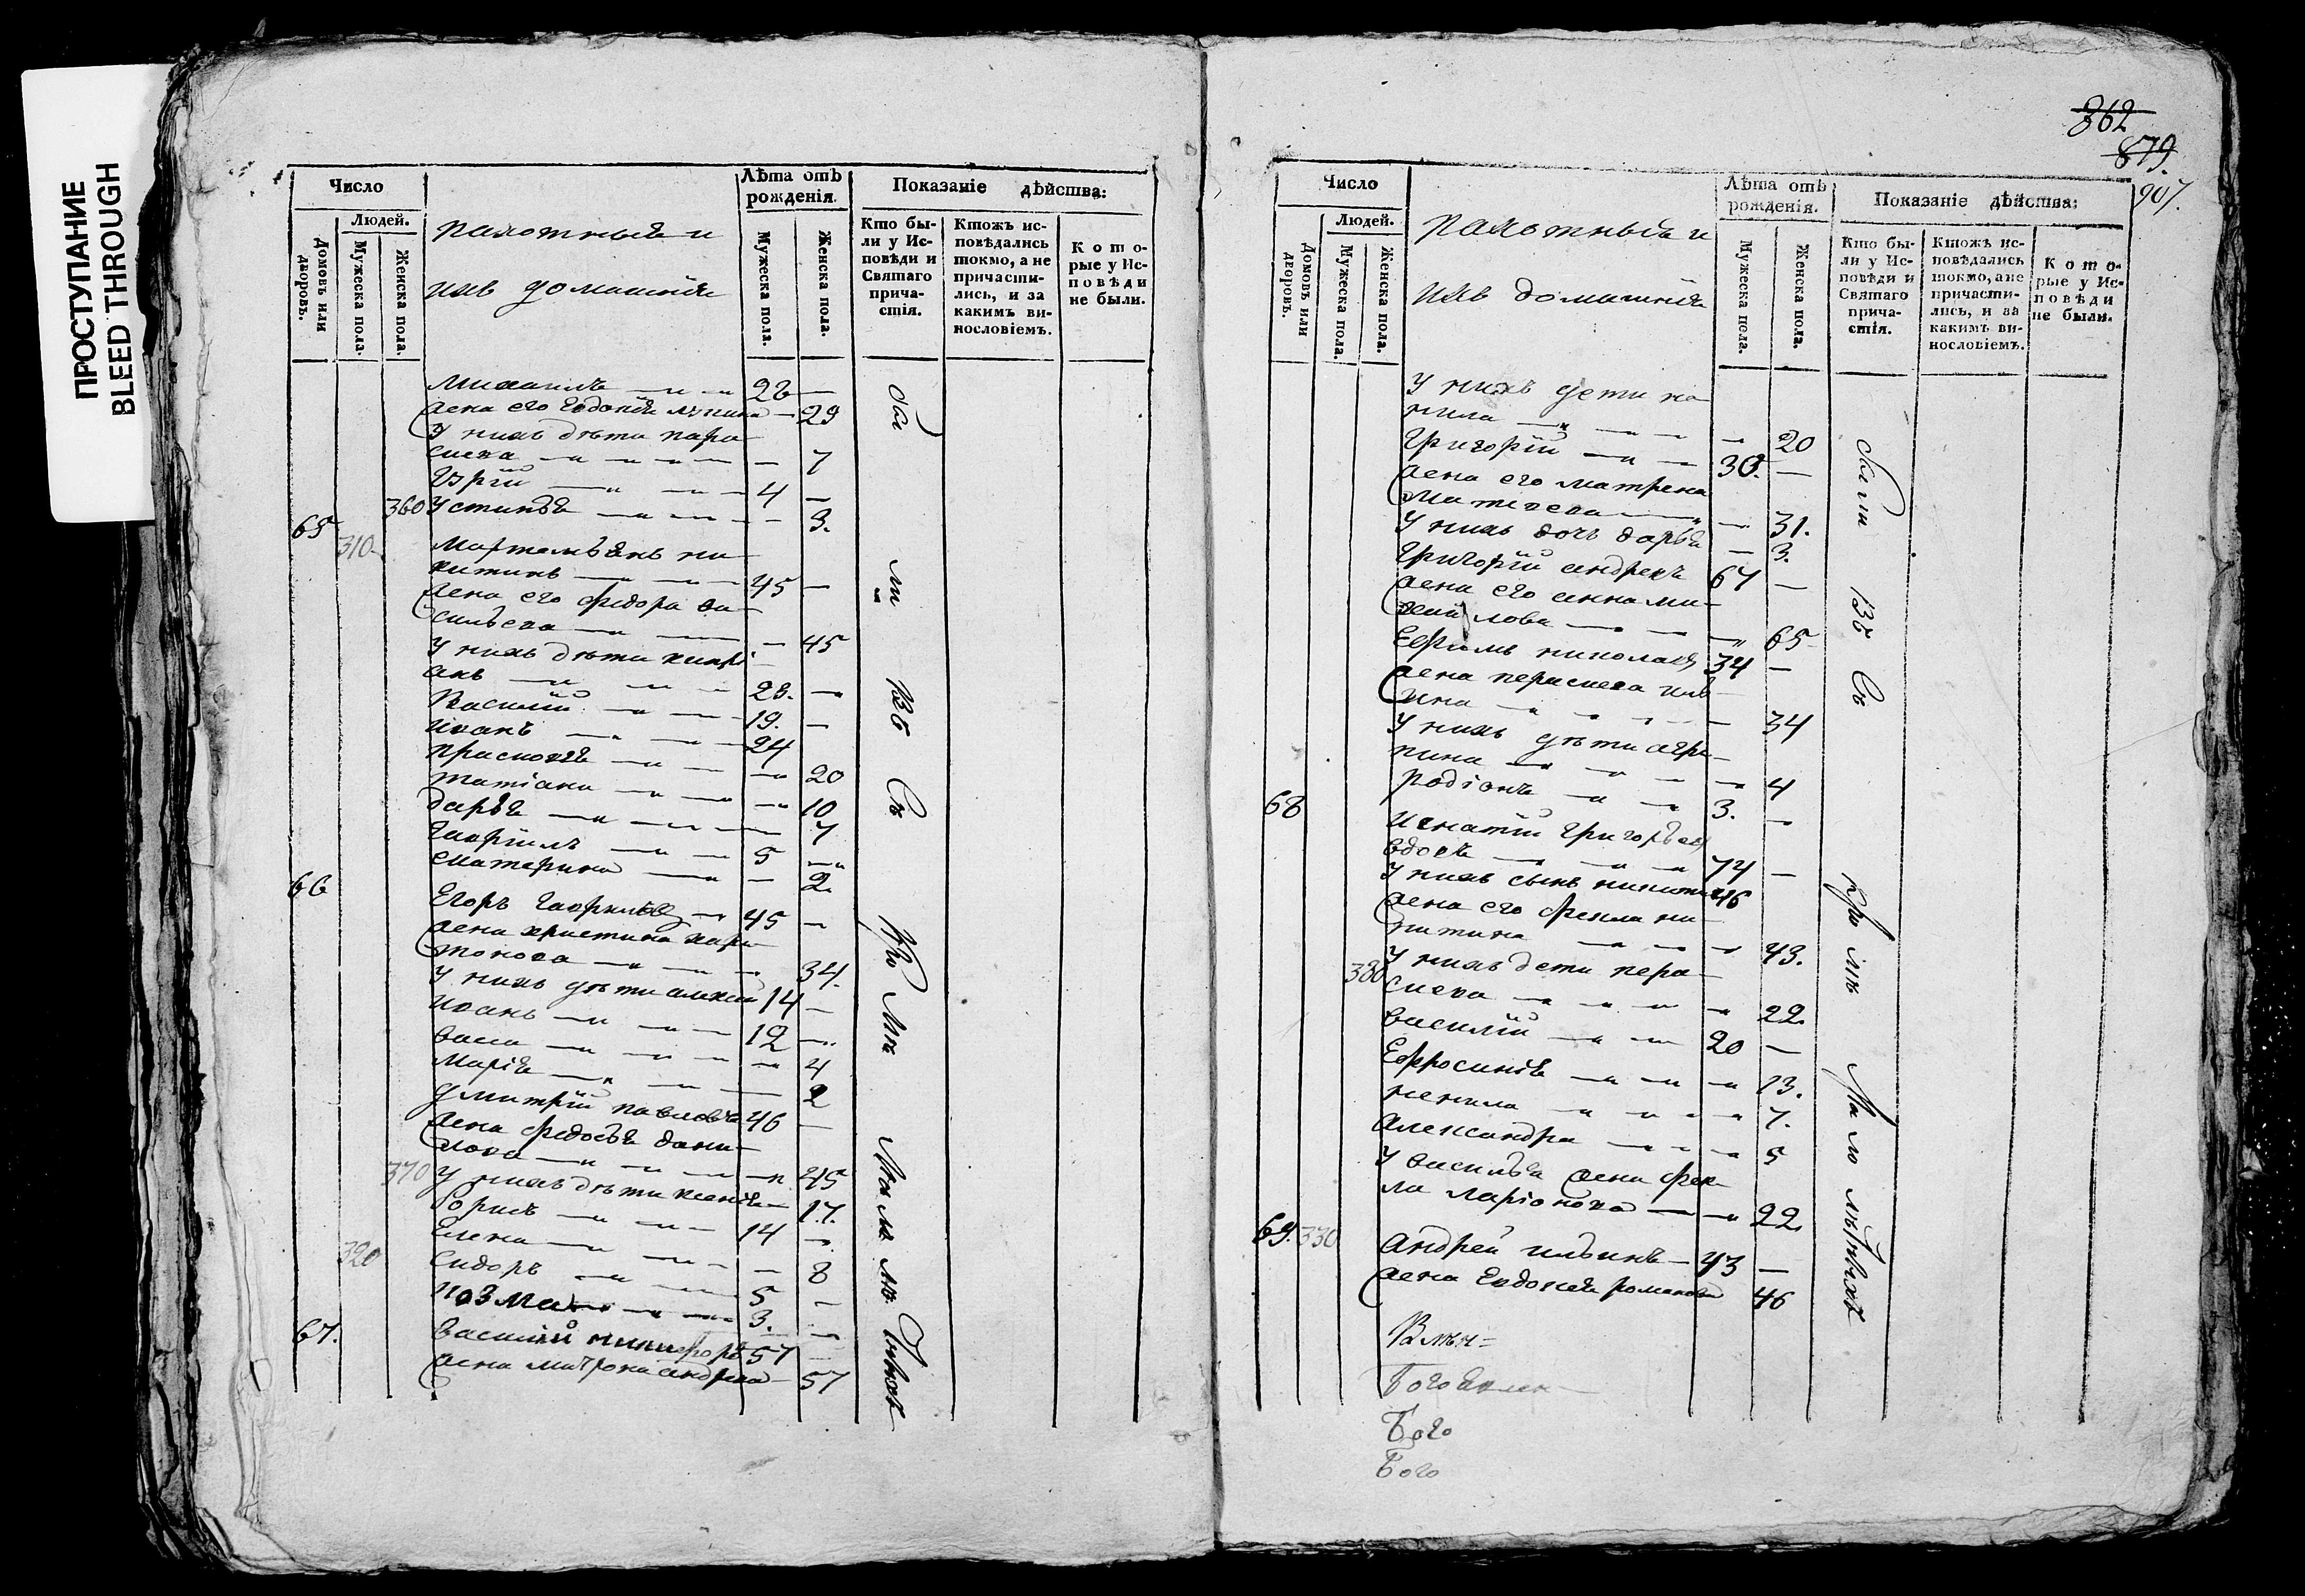 ПРОСТУПАНИЕ
BLEED THROUGH
Число
Людей.
Домовъ или дворовъ.
Мужеска пола.
Женска пола.
пахотныѣ и
ихъ домашнїе
Лѣта отъ рожденїя.
Мужеска пола.
Женска пола.
Показанїе дѣйства:
Кто бы-
ли у Ис-
повѣди и
Святаго
прича-
стїя.
Ктожъ ис-
повѣдались
токмо, а не
причасти-
лись, и за
какимъ ви-
нословїемъ.
К о т о-
рые у Ис-
повѣди
не были.
Михаилъ 28 —
жена его 29
У нихъ дѣти пара-
скева — 7
4 —
360 Устинья — 3.
65 310
китинъ 45 —
жена его Федора ва-
сильева — 45
У нихъ дѣти кипрї-
анъ 23. —
Василїй 19. —
иванъ 24
20
татїана — 10
дарья — 7
гаврїилъ 5 —
екатерина — 2.
66 Егоръ гаврилов 45 —
жена христина хари-
тонова — 34.
У нихъ дѣти алексей 14 —
иванъ 12 —
васа — 4
Марїя — 2
дмитрїй павловъ 46 —
жена федосья дани-
лова — 45
370 У нихъ дѣти ксенїя — 17.
борисъ 14 —
Елена — 8
320 Сидоръ 5 —
козма 3. —
67. василий никифоръ 57 —
жена матрона андреева — 57
862
879.
907.
Число
Людей.
Домовъ или дворовъ.
Мужеска пола.
Женска пола.
пахотныѣ и
ихъ домашнїя
Лѣта отъ рожденїя.
Мужеска пола.
Женска пола.
Показанїе дѣйства:
Кто бы-
ли у Ис-
повѣди и
Святаго
прича-
стїя.
Ктожъ ис-
повѣдались
токмо, а не
причасти-
лись, и за
какимъ ви-
нословїемъ.
К о т о-
рые у Ис-
повѣди
не были.
У нихъ дети не-
нила — 20
Григорїй 30. —
жена его матрена
Матвеева — 31.
У нихъ дочь дарья — 3.
Григорїй андреевъ 67 —
жена его анна ми-
хайлова — 65
Ефимъ николаев 34 —
жена параскева иль-
ина — 34
У нихъ дѣти агри-
пина — 4
Родїонъ 3. —
68 Игнатїй Григорьев
вдовъ 74 —
У нихъ сынъ никита 46
жена его фекла ни-
китина — 43.
380 У нихъ дети пара-
скева — 22.
василїй 20 —
Ефросинїя — 13.
ненила — 7.
Александра — 5
У василья жена фек-
ла ларїонова — 22.
69. 330 Андрей ильинъ 43 —
жена Евдокея романова 46
Богоявлен-
Бого
Бого